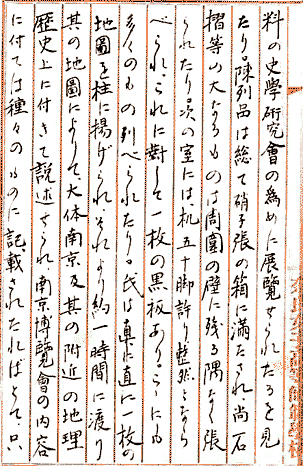 料の史學研究會の為めに展覽せられたるを見
たり、陳列品は総て硝子張の箱に滿たされ、尚石
摺等の大なるものは周圍の壁に殘る隅なく張
られたり、次の室には、机五十脚許り整然となら
べられ、これに對して一枚の黒板あり、こゝにも
多くのもの列べられたり、氏は直に一枚の
地圖を柱に揚げられ、それより約一時間に渡り
其の地圖によりて、大体南京及其の附近の地理
歴史上に付きて説述せられ、南京博覽會の内容
に付ては種々のものに記載されたればとて、只、